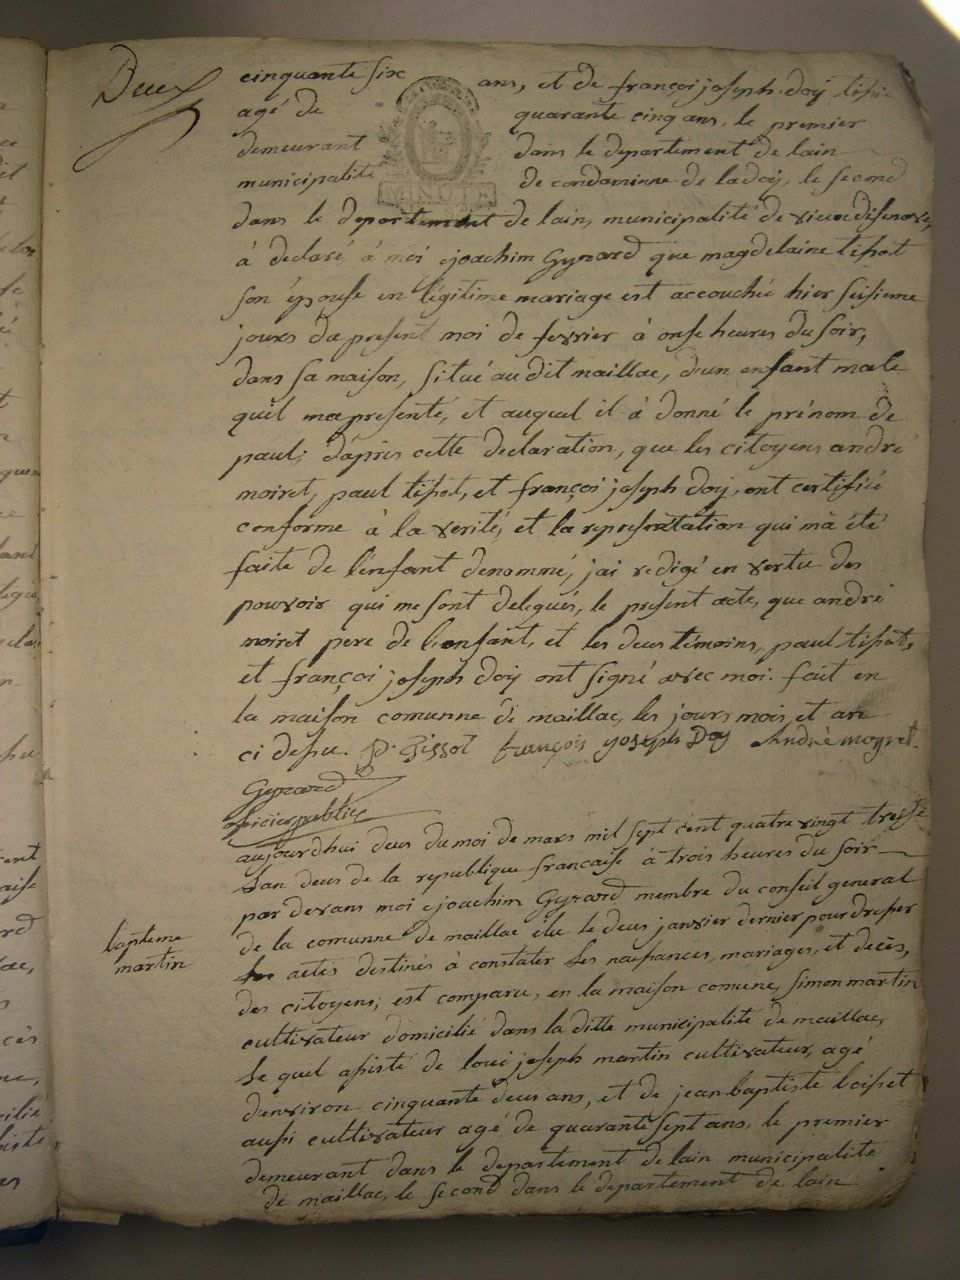 Deux
cinquante six ans, et de françoi joseph doij
agé de quarante cinq ans, le premier
demeurant dans le departement de lain
municipalité de condaminne de ladoij, le second
MINUTE
dans le departement de lain, municipalité de vieux disenave,
à declaré à moi ejoachim Gyrard que magdelaine tissot
son épouse en légitime mariage est accouchée hier seisieme
jours da present moi de fevrier à onse heures du soir,
dans sa maison, situé au dit maillac, d'un enfant male
qu'il ma presenté, et auquel il à donné le prénom de
paul; d'après cette declaration, que les citoyens andré
moiret, paul tissot, et françoi joseph doij, ont certifiée
conforme à la verité, et la representation qui mà été
faite de l'enfant denommé, jai redigé en vertu des
pouvoir qui me sont delegués, le present acte, que andré
moiret pere de lenfant, et les deus témoins, paul tissot,
et françoi joseph doij ont signé avec moi. fait en
la maison comunne de maillac, les jours mois et an
ci desu. P. Tissot françois yoseph Doy Andrè moyret
Gyrard
officier public
aujourdhui deus du moi de mars mil sept cent quatre vingt treise
lan deus de la republique francaise à trois heures du soir
par devans moi ejoachim Gyrard membre du conseil general
de la comunne de maillac élu le deus janvier dernier pour dresser
les actes destinés à constater les naissances, mariages, et decès,
bapteme
martin
des citoyens, est comparu, en la maison comune, simon martin
cultivateur domicilié dans la ditte municipalité de maillac,
le quel assisté de loui joseph martin cultivateur, agé
denviron cinquante deus ans, et de jean baptiste boisset
aussi cultivateur agé de quarante sept ans, le premier
demeurant dans le departement de lain municipalité
de maillac, le second dans le departement de lain